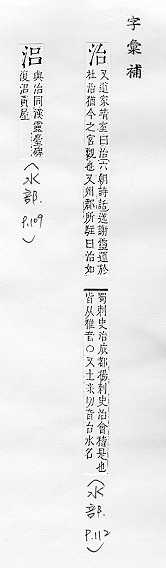 字彙補
治 又道家靖室曰治六朝詩話送謝靈運於
杜治猶今之宮觀也又州郡所駐曰治如
蜀刺史治成都揚刺史治會稽是也
皆从推音〇又土來切音台水名
(水部. P.112)
㳓 與治同漢靈臺碑
復治黃屋
(水部. P.109)